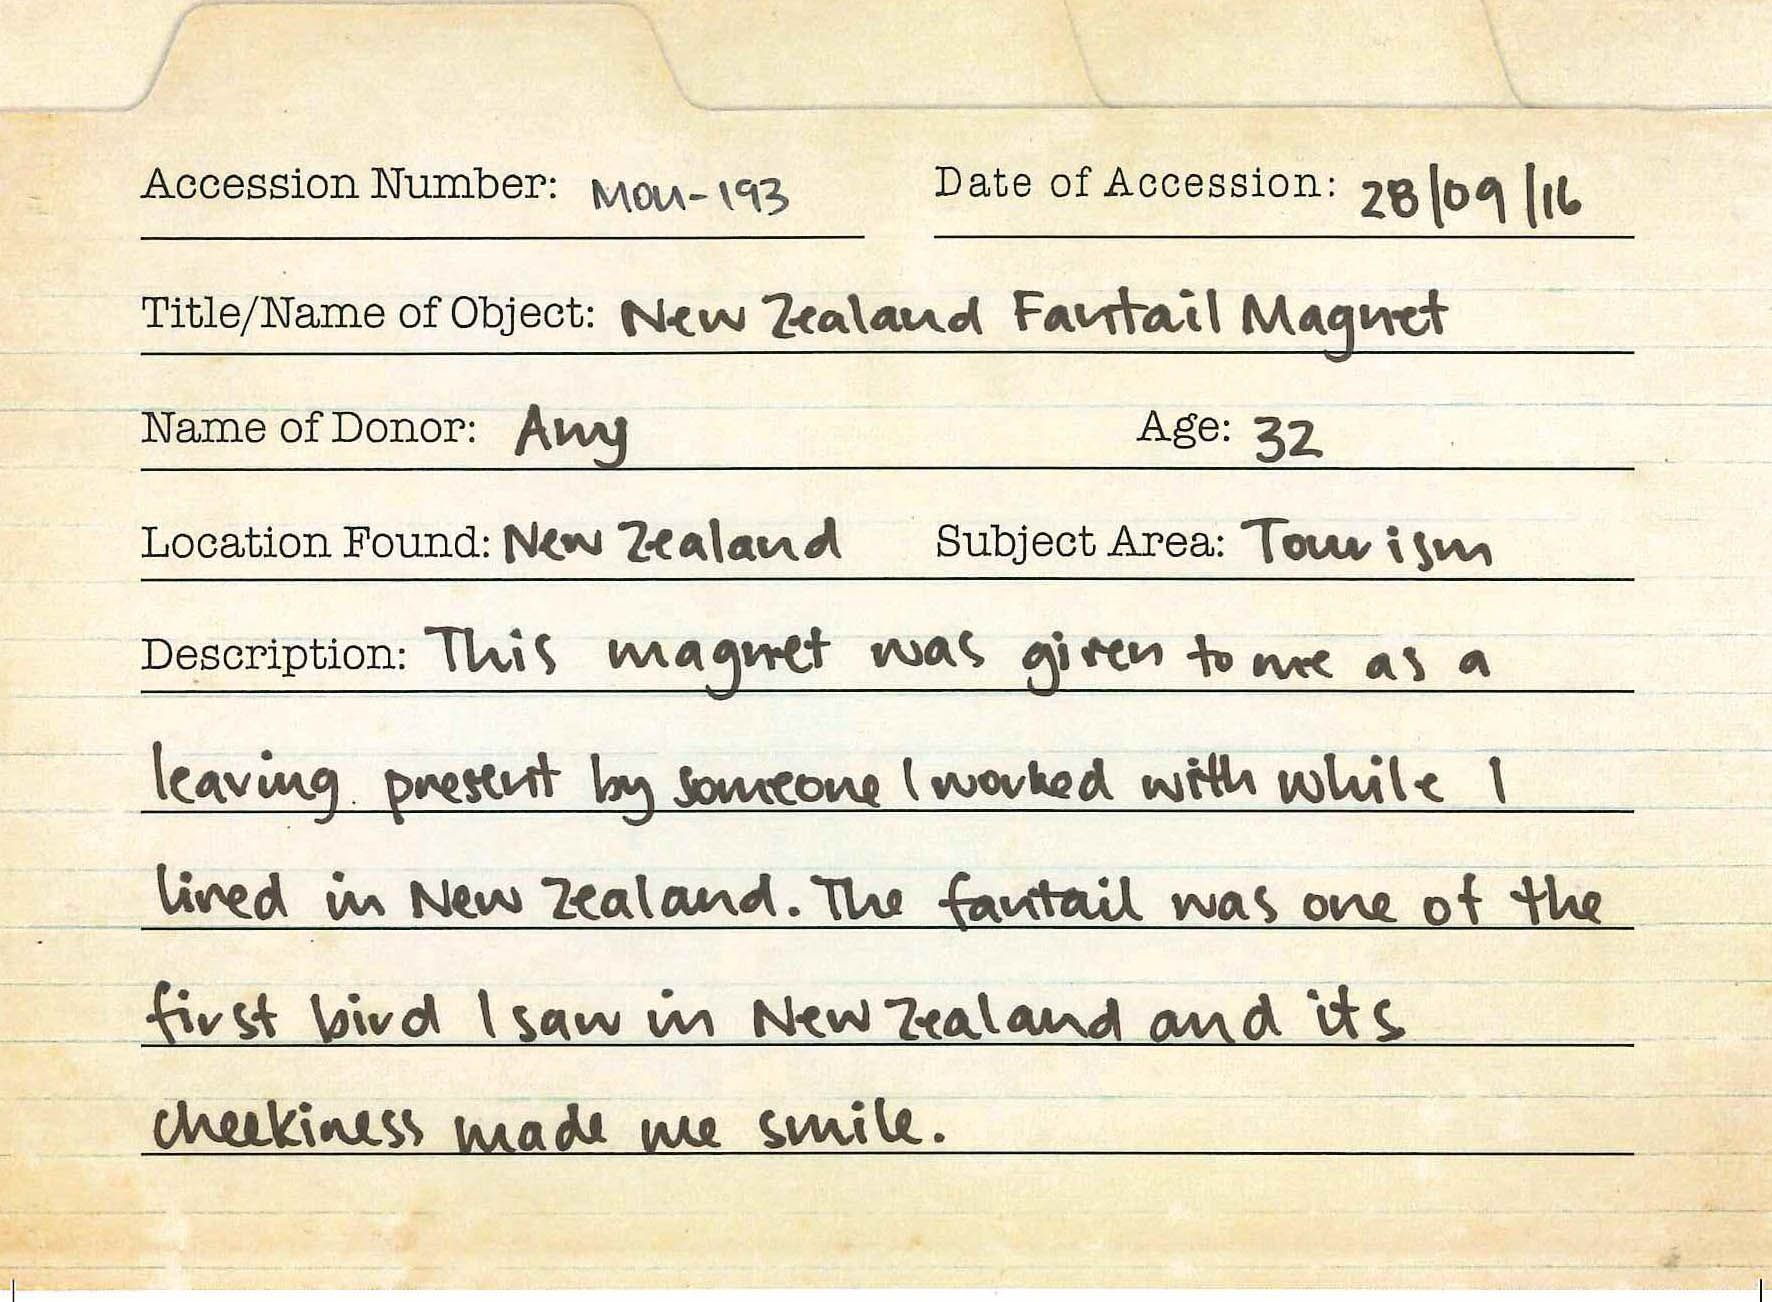 Accession Number: MOU-193 Date of Accession: 28/09/16
Title/Name of Object: New Zealand Fantail Magnet
Name of Donor: Amy Age: 32
Location Found: New Zealand Subject Area: Tourism
Description: This magnet was given to me as a
leaving present by someone I worked with while I
lived in New Zealand. The fantail was one of the
first bird I saw in New Zealand and its
cheekiness made me smile.